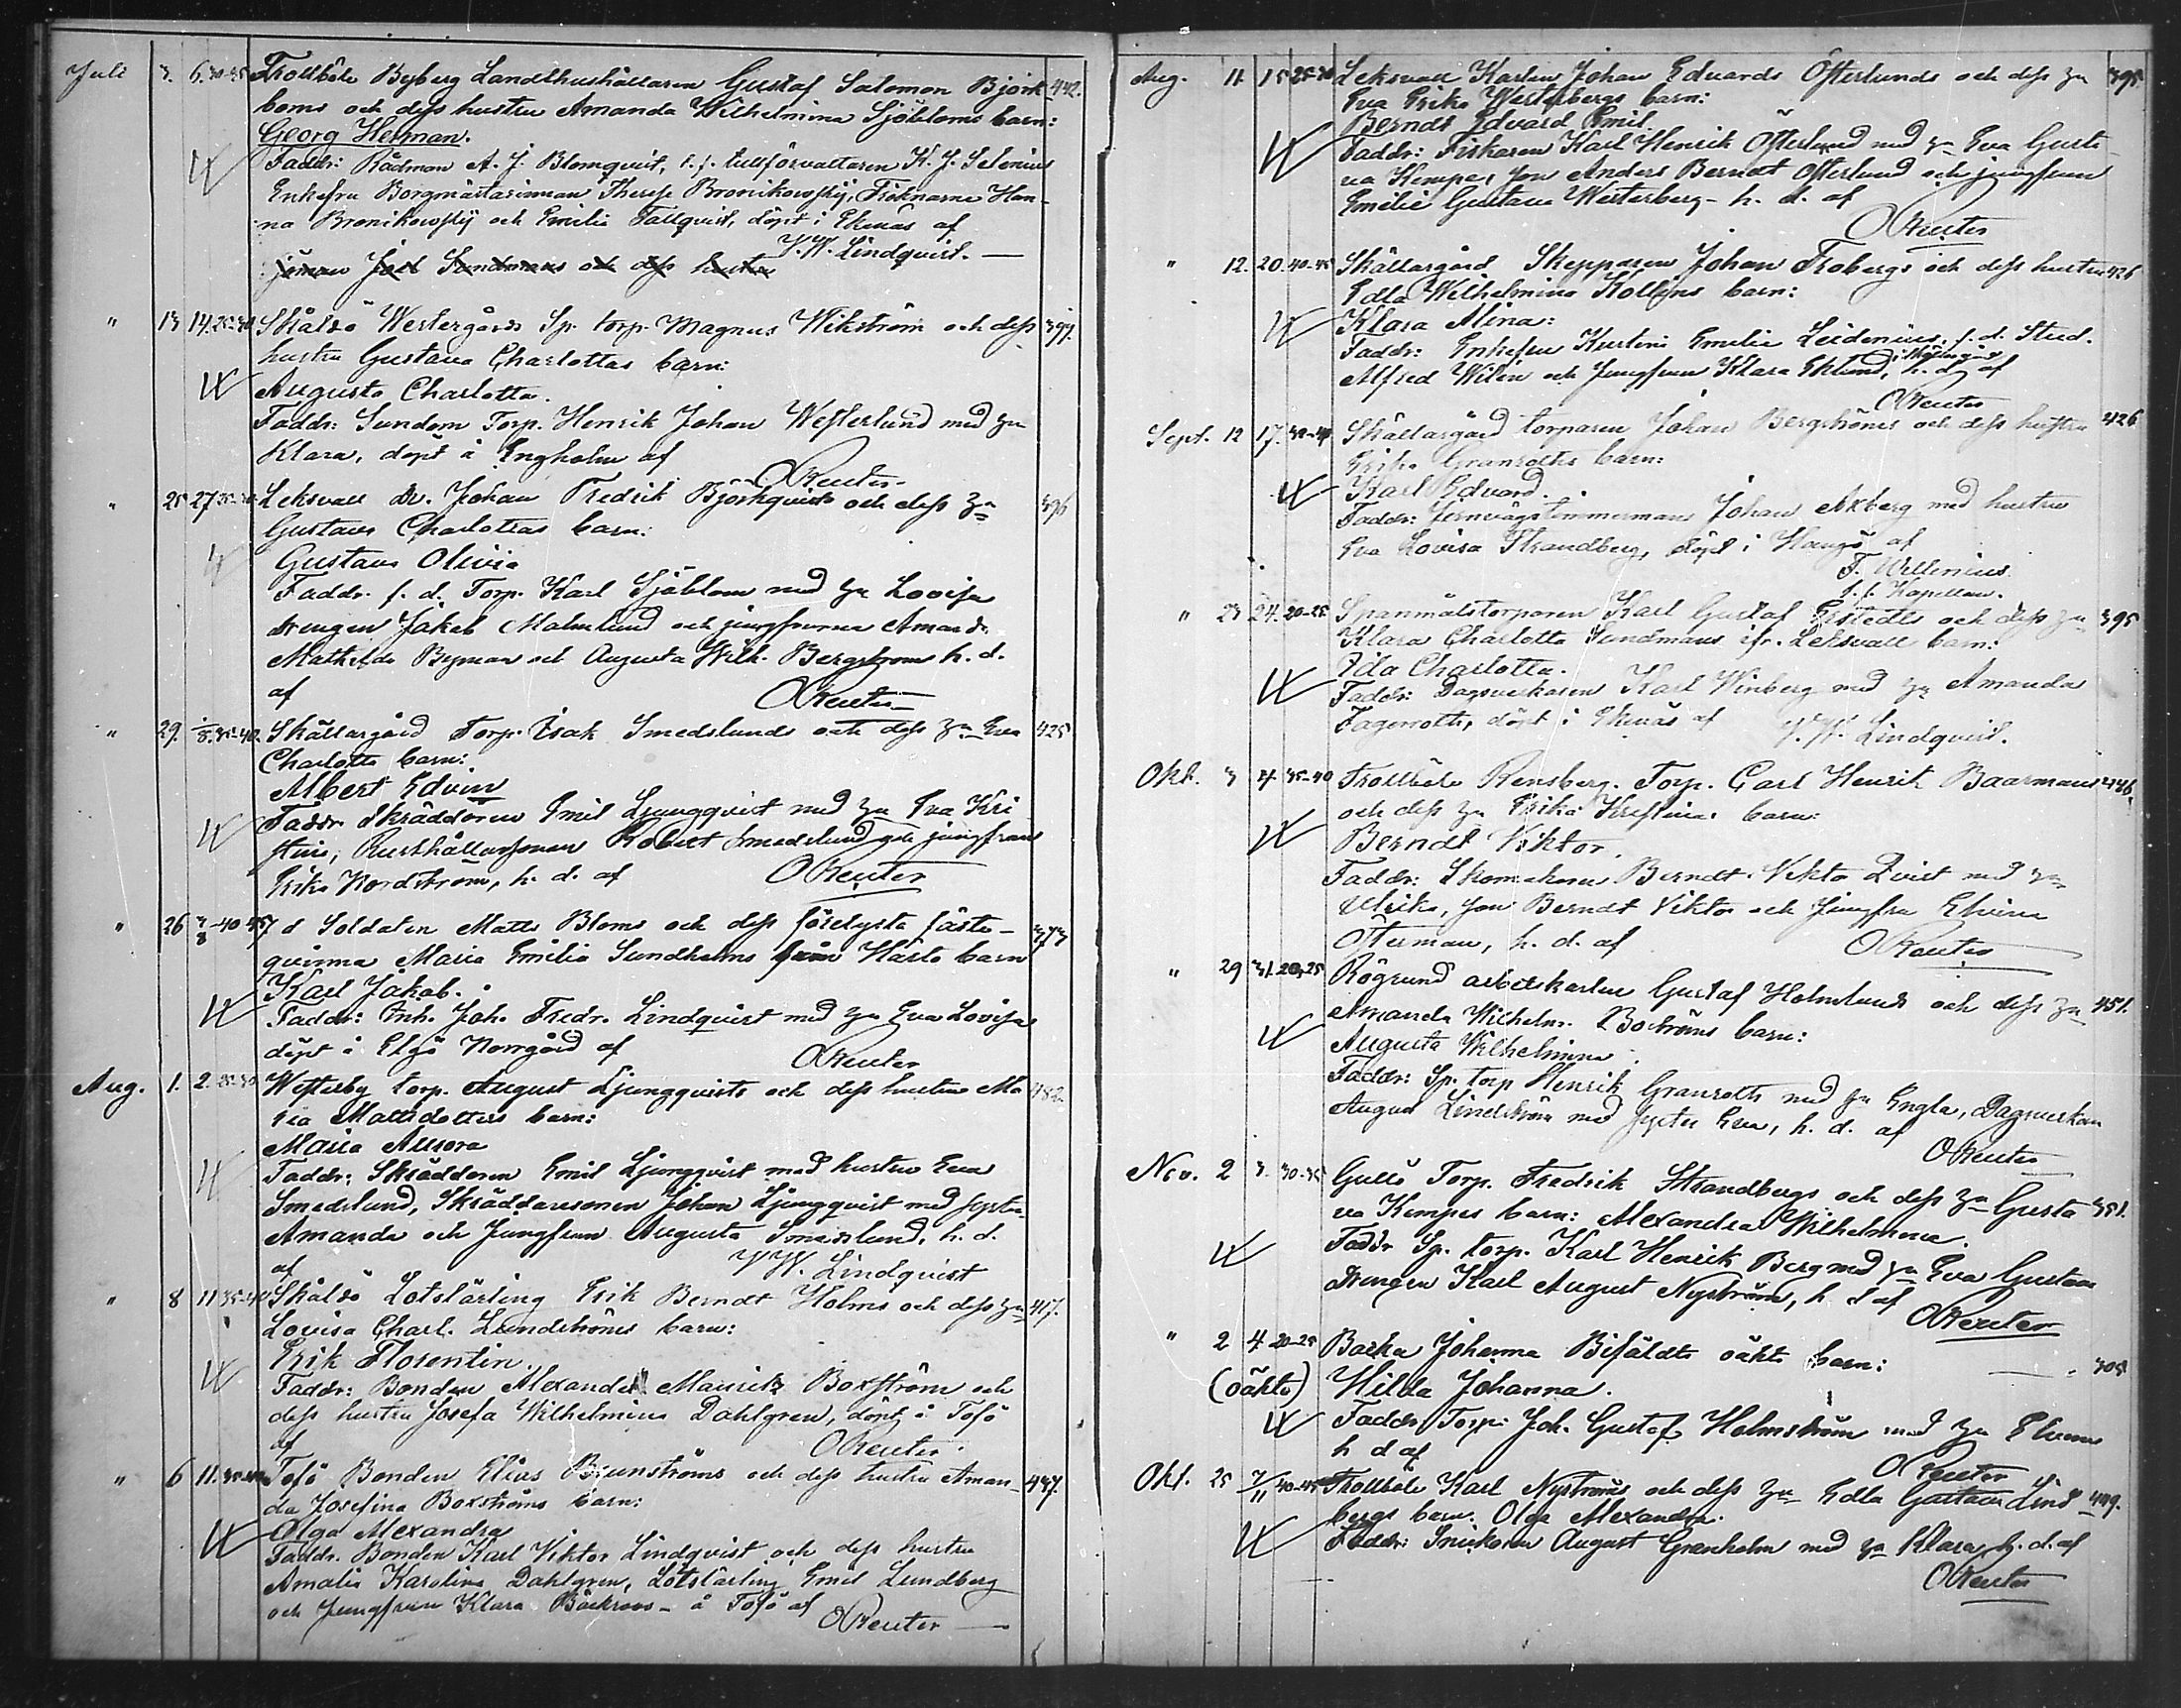 Juli 3. 6. 30-35 Trollböle Byberg Landthushållaren Gustaf Salomon Björk- 442.
boms och dess hustru Amanda Wilhelmina Sjöbloms barn:
Georg Herman.
Faddr: Rådman A. J. Blomqvist, t. f. tullförvaltaren K. J. Selenius
Enkefru Borgmästarinnan Therese Bronikowsky, Fröknarna Han-
na Bronikowsky och Emilie Fallqvist, döpt i Ekenäs af
V. W. Lindqvist.
Joel Sundmans och dess hustru
" 13 14. 25-30 Skåldö Westergårds Sp. torp. Magnus Wikström och dess 397.
hustru Gustava Charlottas barn:
Augusta Charlotta.
Faddr: Sundom Torp. Henrik Johan Westerlund med hu
Klara, döpt å Engholm af
OReuter
" 25 27 Leksvall Dr. Johan Fredrik Björkqvists och dess hu 396
Gustava Charlottas barn:
Gustava Olivia
Faddr. f. d. Torp. Karl Sjöblom med hu Lovisa
drengen Jakob Malmlund och jungfrurna Amanda
Mathilda Byman och Augusta Wilh. Bergstrom h. d.
af OReuter
" 29. 1/8. 35-40. Skällargård Torp. Isak Smedslunds och dess hu Eva 425
Charlotta barn:
Albert Edvin
Faddr Skräddaren Emil Ljungqvist med hu Eva Kri
stina, Rusthållarsonen Robert Smedslund och jungfrun
Erika Nordström, h. d. af OReuter
" 26 3/8 40-45 f d Soldaten Matts Bloms och dess förelysta fäste- 373
qvinna Maria Emilia Sundholms från Härtö barn
Karl Jakob.
Faddr: Enh. Joh. Fredr. Lindqvist med hu Eva Lovisa
döpt å Elgö Norrgård af OReuter
Aug. 1. 2. 25-30 Westerby torp. August Ljungqvists och dess hustru Ma 482.
ria Mattsdotters barn:
Maria Aurora
Faddr: Skräddaren Emil Ljungqvist med hustru Eva
Smedslund, Skräddaresonen Johan Ljungqvist med syster
Amanda och Jungfrun Augusta Smedslund, h. d.
af V W. Lindqvist
" 8 11 35-40 Skåldö Lotslärling Erik Berndt Holms och dess hu 417.
Lovisa Charl. Lundströms barn:
Erik Florentin.
Faddr: Bonden Alexander Mauritz Boxström och
dess hustru Josefa Wilhelmina Dahlgren, döpt å Tofö
af OReuter.
" 6 11. Tofö Bonden Elias Brunströms och dess hustru Aman- 447.
da Josefina Boxströms barn:
Olga Alexandra
Faddr. Bonden Karl Viktor Lindqvist och dess hustru
Amalia Karolina Dahlgren, Lotslärling Emil Lundberg
och Jungfrun Klara Bäckroos - å Tofö af
OReuter
Aug. 11 15 25-30 Leksvall Karlen Johan Edvards Österlunds och dess hu 395.
Eva Erika Westerbergs barn:
Berndt Edvard Emil.
Faddr: Fiskaren Karl Henrik Österlund med hu Eva Gusta-
va Kemper, son Anders Berndt Österlund och jungfrun
Emilie Gustava Westerberg - h. d. af
OReuter
" 12. 20. 40-45 Skällargård Skepparen Johan Frobergs och dess hustru 426
Edla Wilhelmina Kollins barn:
Klara Alina:
Faddr: Enkefru Kerstin Emilie Leidenius, f. d. Stud.
Alfred Wilén och Jungfrun Klara Eklund, i Skällargård h. d. af
OReuter
Sept. 12 17. Skällargård torparen Johan Bergströms och dess hustru 426
Erika Granroths barn:
Karl Edvard.
Faddr: Jernvägstimmerman Johan Akberg med hustru
Eva Lovisa Strandberg, döpt i Hangö af
F. Wellenius
t. f. Kapellan.
" 23 24. 20-25 Spanmålstorparen Karl Gustaf Ekstedts och dess hu 395
Klara Charlotta Sundmans ifr. Leksvall barn:
Ida Charlotta.
Faddr: Dagsverkaren Karl Winberg med hu Amanda
Fagerroth, döpt i Ekenäs af V. W. Lindqvist.
Okt. 3 4 35-40 Trollböle Rensberg. Torp. Carl Henrik Baarmans 446.
och dess hu Erika Kristinas barn:
Berndt Viktor.
Faddr: Skomakaren Berndt Viktor Qvist med hu
Ulrika, son Berndt Viktor och Jungfru Elvira
Österman, h. d. af OReuter
" 29 31. 20-25 Rögrund arbetskarlen Gustaf Holmlunds och dess hu 451.
Amanda Wilhelm. Boströms barn:
Augusta Wilhelmina.
Faddr: Sp. torp Henrik Granroth med hu Engla, Dagsverkaren
August Lindström med syster Eva, h. d. af
OReuter
Nov. 2 3. 30-35 Gullö Torp. Fredrik Strandbergs och dess hu Gusta- 351.
va Kempes barn: Alexandra Wilhelmina.
Faddr Sp. torp. Karl Henrik Berg med hu Eva Gustava
drengen Karl August Nyström, h d af
OReuter
" 2 4 20-25 Backa Johanna Bifäldts oäkta barn: 305
(oäkta) Hilda Johanna.
Faddr Torp: Joh. Gustaf Holmström med hu Elvira
h d af OReuter
Okt. 25 7/11 40-45 Trollböle Karl Nyströms och dess hu Edla Gustava Lind- 449.
bergs barn. Olga Alexandra.
Faddr: Snickaren August Granholm med hu Klara, h. d. af
OReuter